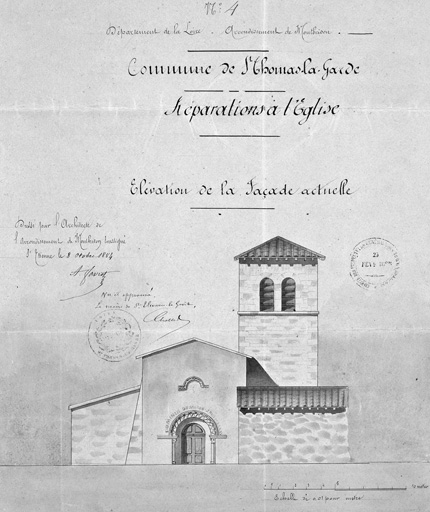 N° 4
Département de la Loire. Arrondissement de Montbrison.
Commune de St Thomas-la-Garde
Réparations à l'Eglise
Elévation de la Façade actuelle
Dressé par l'Architecte de
l'arrondissement de Montbrison soussigné
St Etienne le 8 octobre
Vu et approuvé
Le maire de St Thomas la Garde
Echelle de 0.01 pour mètre